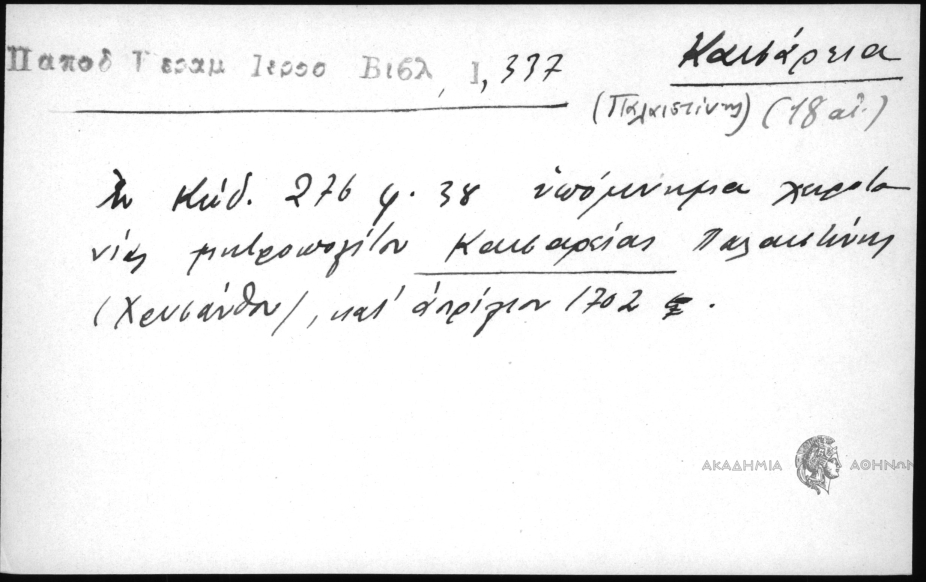 Παποδ Γεραμ Ιερος Βιβλ, 1, 337
Καισάρεια
(Παλαιστίνης) (18 αι.)
ἐν Κώδ. 276 φ. 38 ὑπόμνημα χειροτο
νίας μητροπολίτου Καισαρείας Παλαιστίνης
(Χρυσάνθου), κατ' ἀπρίλιον 1702
ΑΚΑΔΗΜΙΑ ΑΘΗΝΩΝ